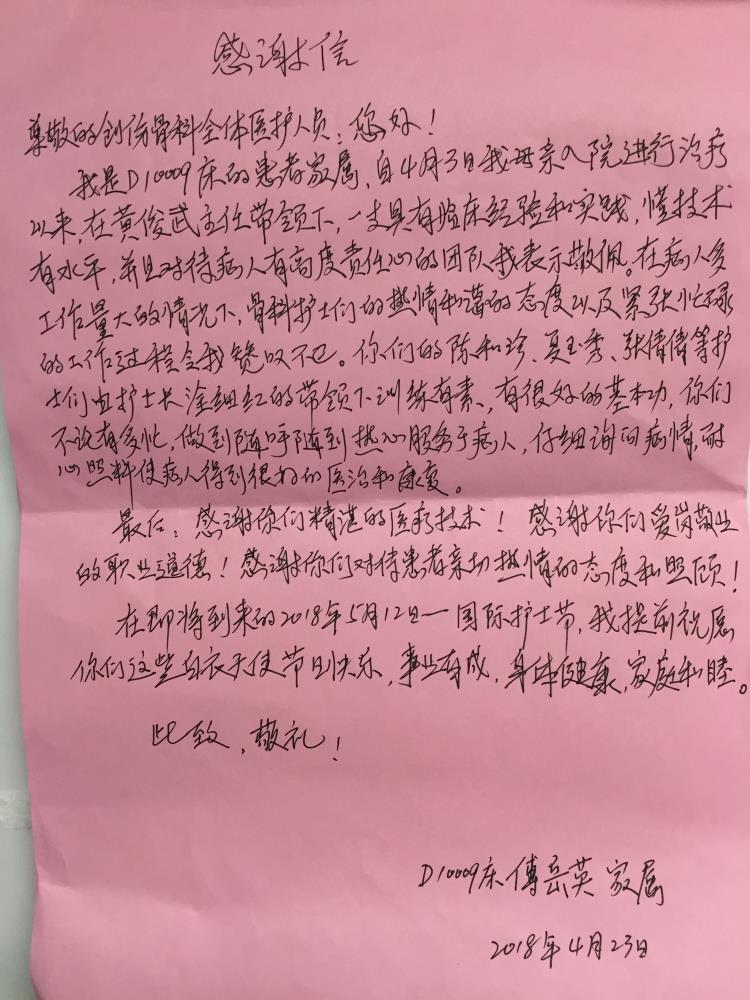 感谢信
尊敬的创伤骨科全体医护人员：您好！
我是D10009床的患者家属，自4月3日我母亲入院进行治疗
以来，在黄俊武主任带领下，一支具有临床经验和实践，懂技术
有水平，并且对待病人有高度责任心的团队我表示敬佩。在病人多
工作量大的情况下，骨科护士们的热情和蔼的态度以及紧张忙碌
的工作过程令我赞叹不已。你们的陈和珍、夏玉秀、张倩倩等护
士们由护士长涂细红的带领下训练有素、有很好的基本功，你们
不论有多忙，做到随呼随到热心服务于病人，仔细询问病情，耐
心照料使病人得到很好的医治和康复。
最后：感谢你们精湛的医疗技术！感谢你们爱岗敬业
的职业道德！感谢你们对待患者亲切热情的态度和照顾！
在即将到来的2018年5月12日一国际护士节，我提前祝愿
你们这些白衣天使节日快乐，事业有成，身体健康，家庭和睦。
此致，敬礼！
D10009床傅岳英家属
2018年4月23日